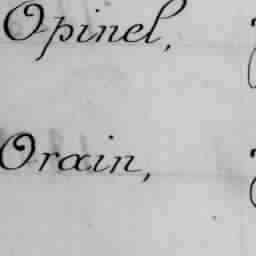 Opinel,
Orain,